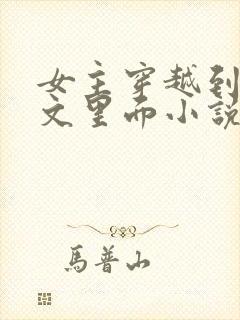 女主穿越到
文里而小說
馬普山